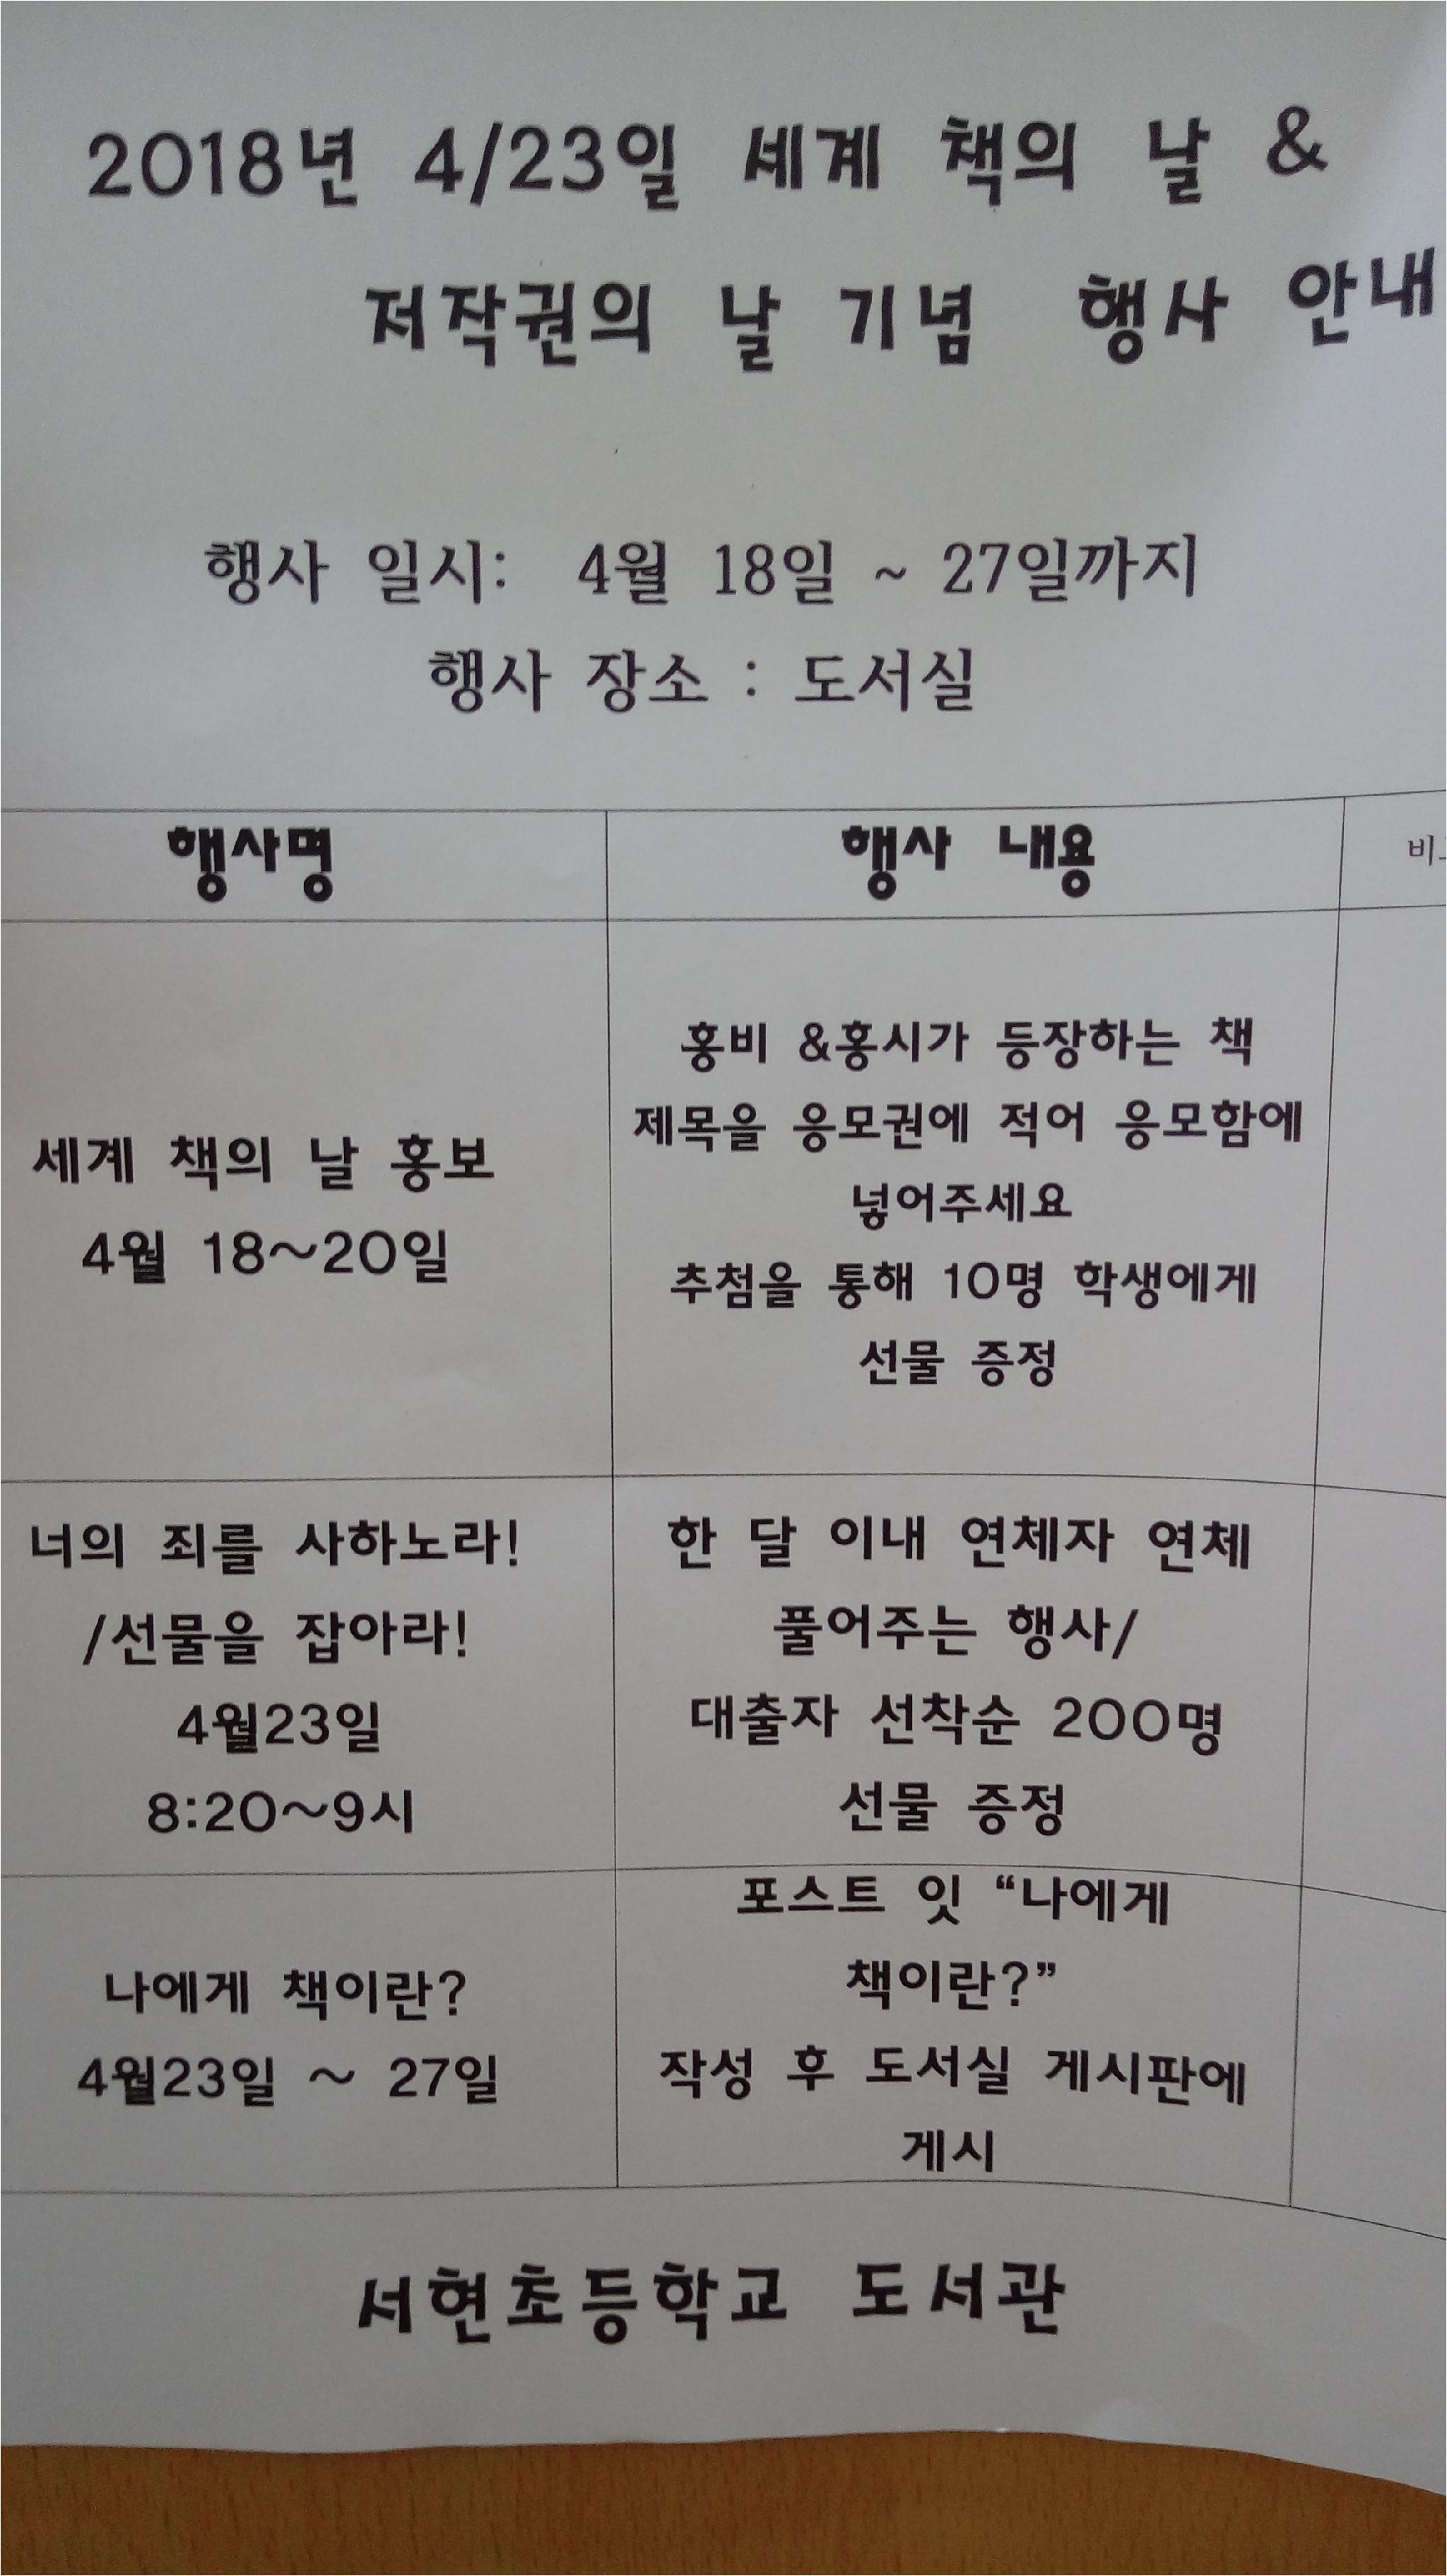 2018년 4/23일 세계 책의 날 &
저작권의 날 기념 행사 안내
행사 일시: 4월 18일 ~ 27일까지
행사 장소 : 도서실
행사명
행사 내용
세계 책의 날 홍보
4월 18~20일
홍비 &홍시가 등장하는 책
제목을 응모권에 적어 응모함에
넣어주세요
추첨을 통해 10명 학생에게
선물 증정
너의 죄를 사하노라!
/선물을 잡아라!
4월23일
8:20~9시
한 달 이내 연체자 연체
풀어주는 행사/
대출자 선착순 200명
선물 증정
나에게 책이란?
4월23일 ~ 27일
포스트 잇 “나에게
책이란?”
작성 후 도서실 게시판에
게시
서현초등학교 도서관